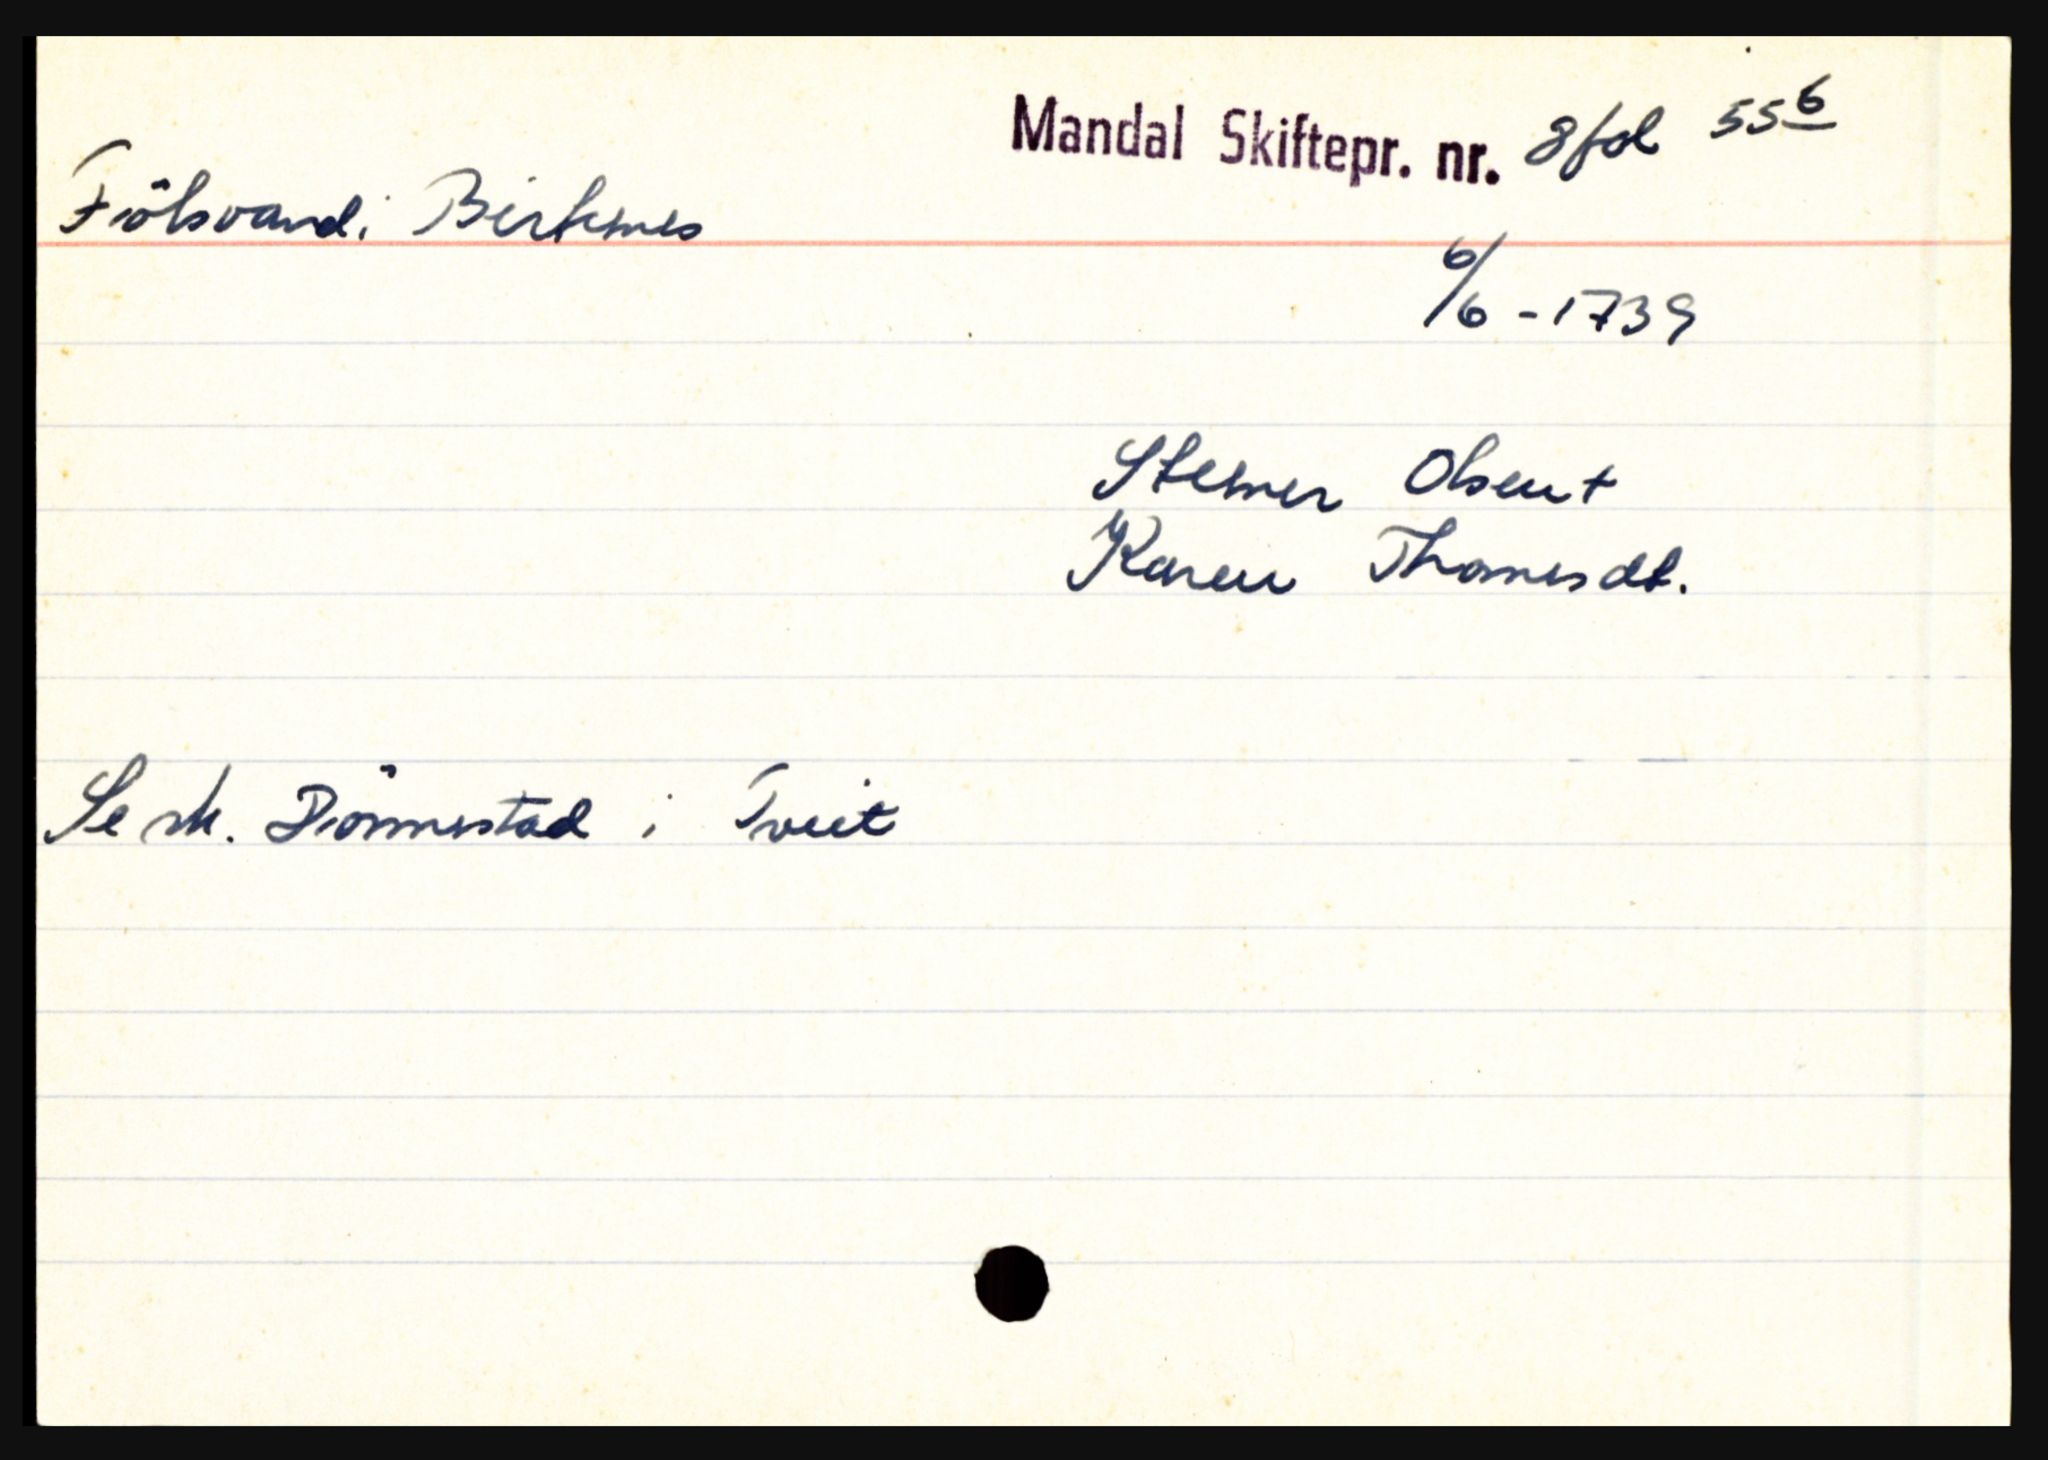 Mandal Skiftepr. nr. 8 fol 556
Fiölsvand i Birkenes
6/6 - 1739
Steiner Olsen +
Karen Thomesdt.
Se sk. Dönnestad i Tveit